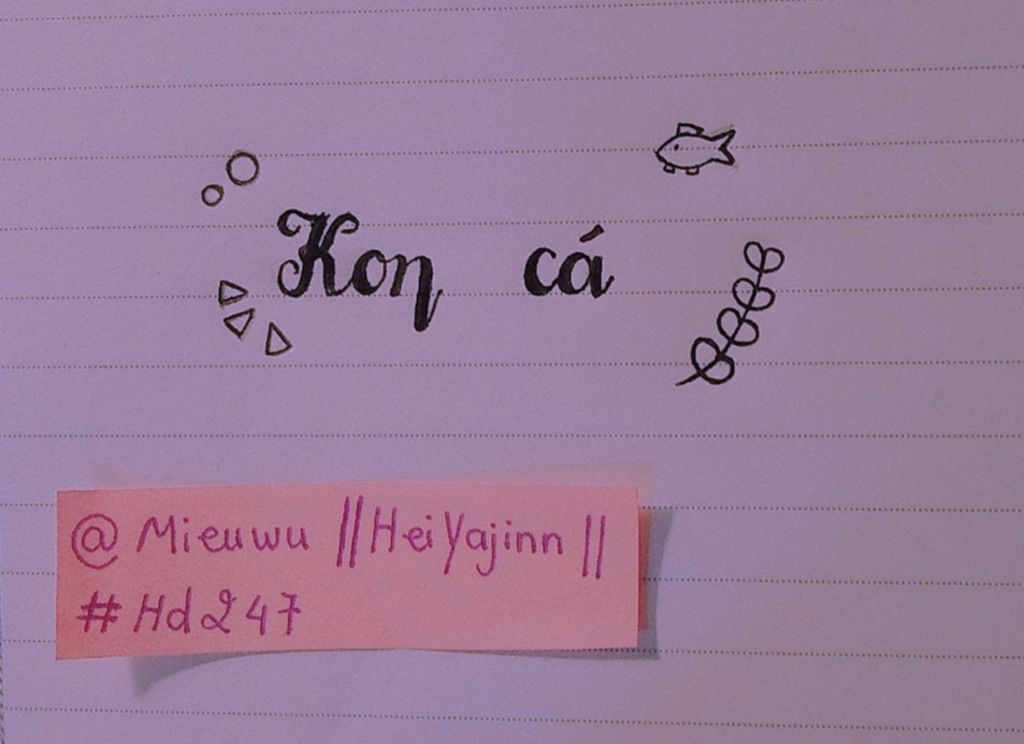 Kon cá
@Mieuwu ||HeiYajinn||
#Hd247